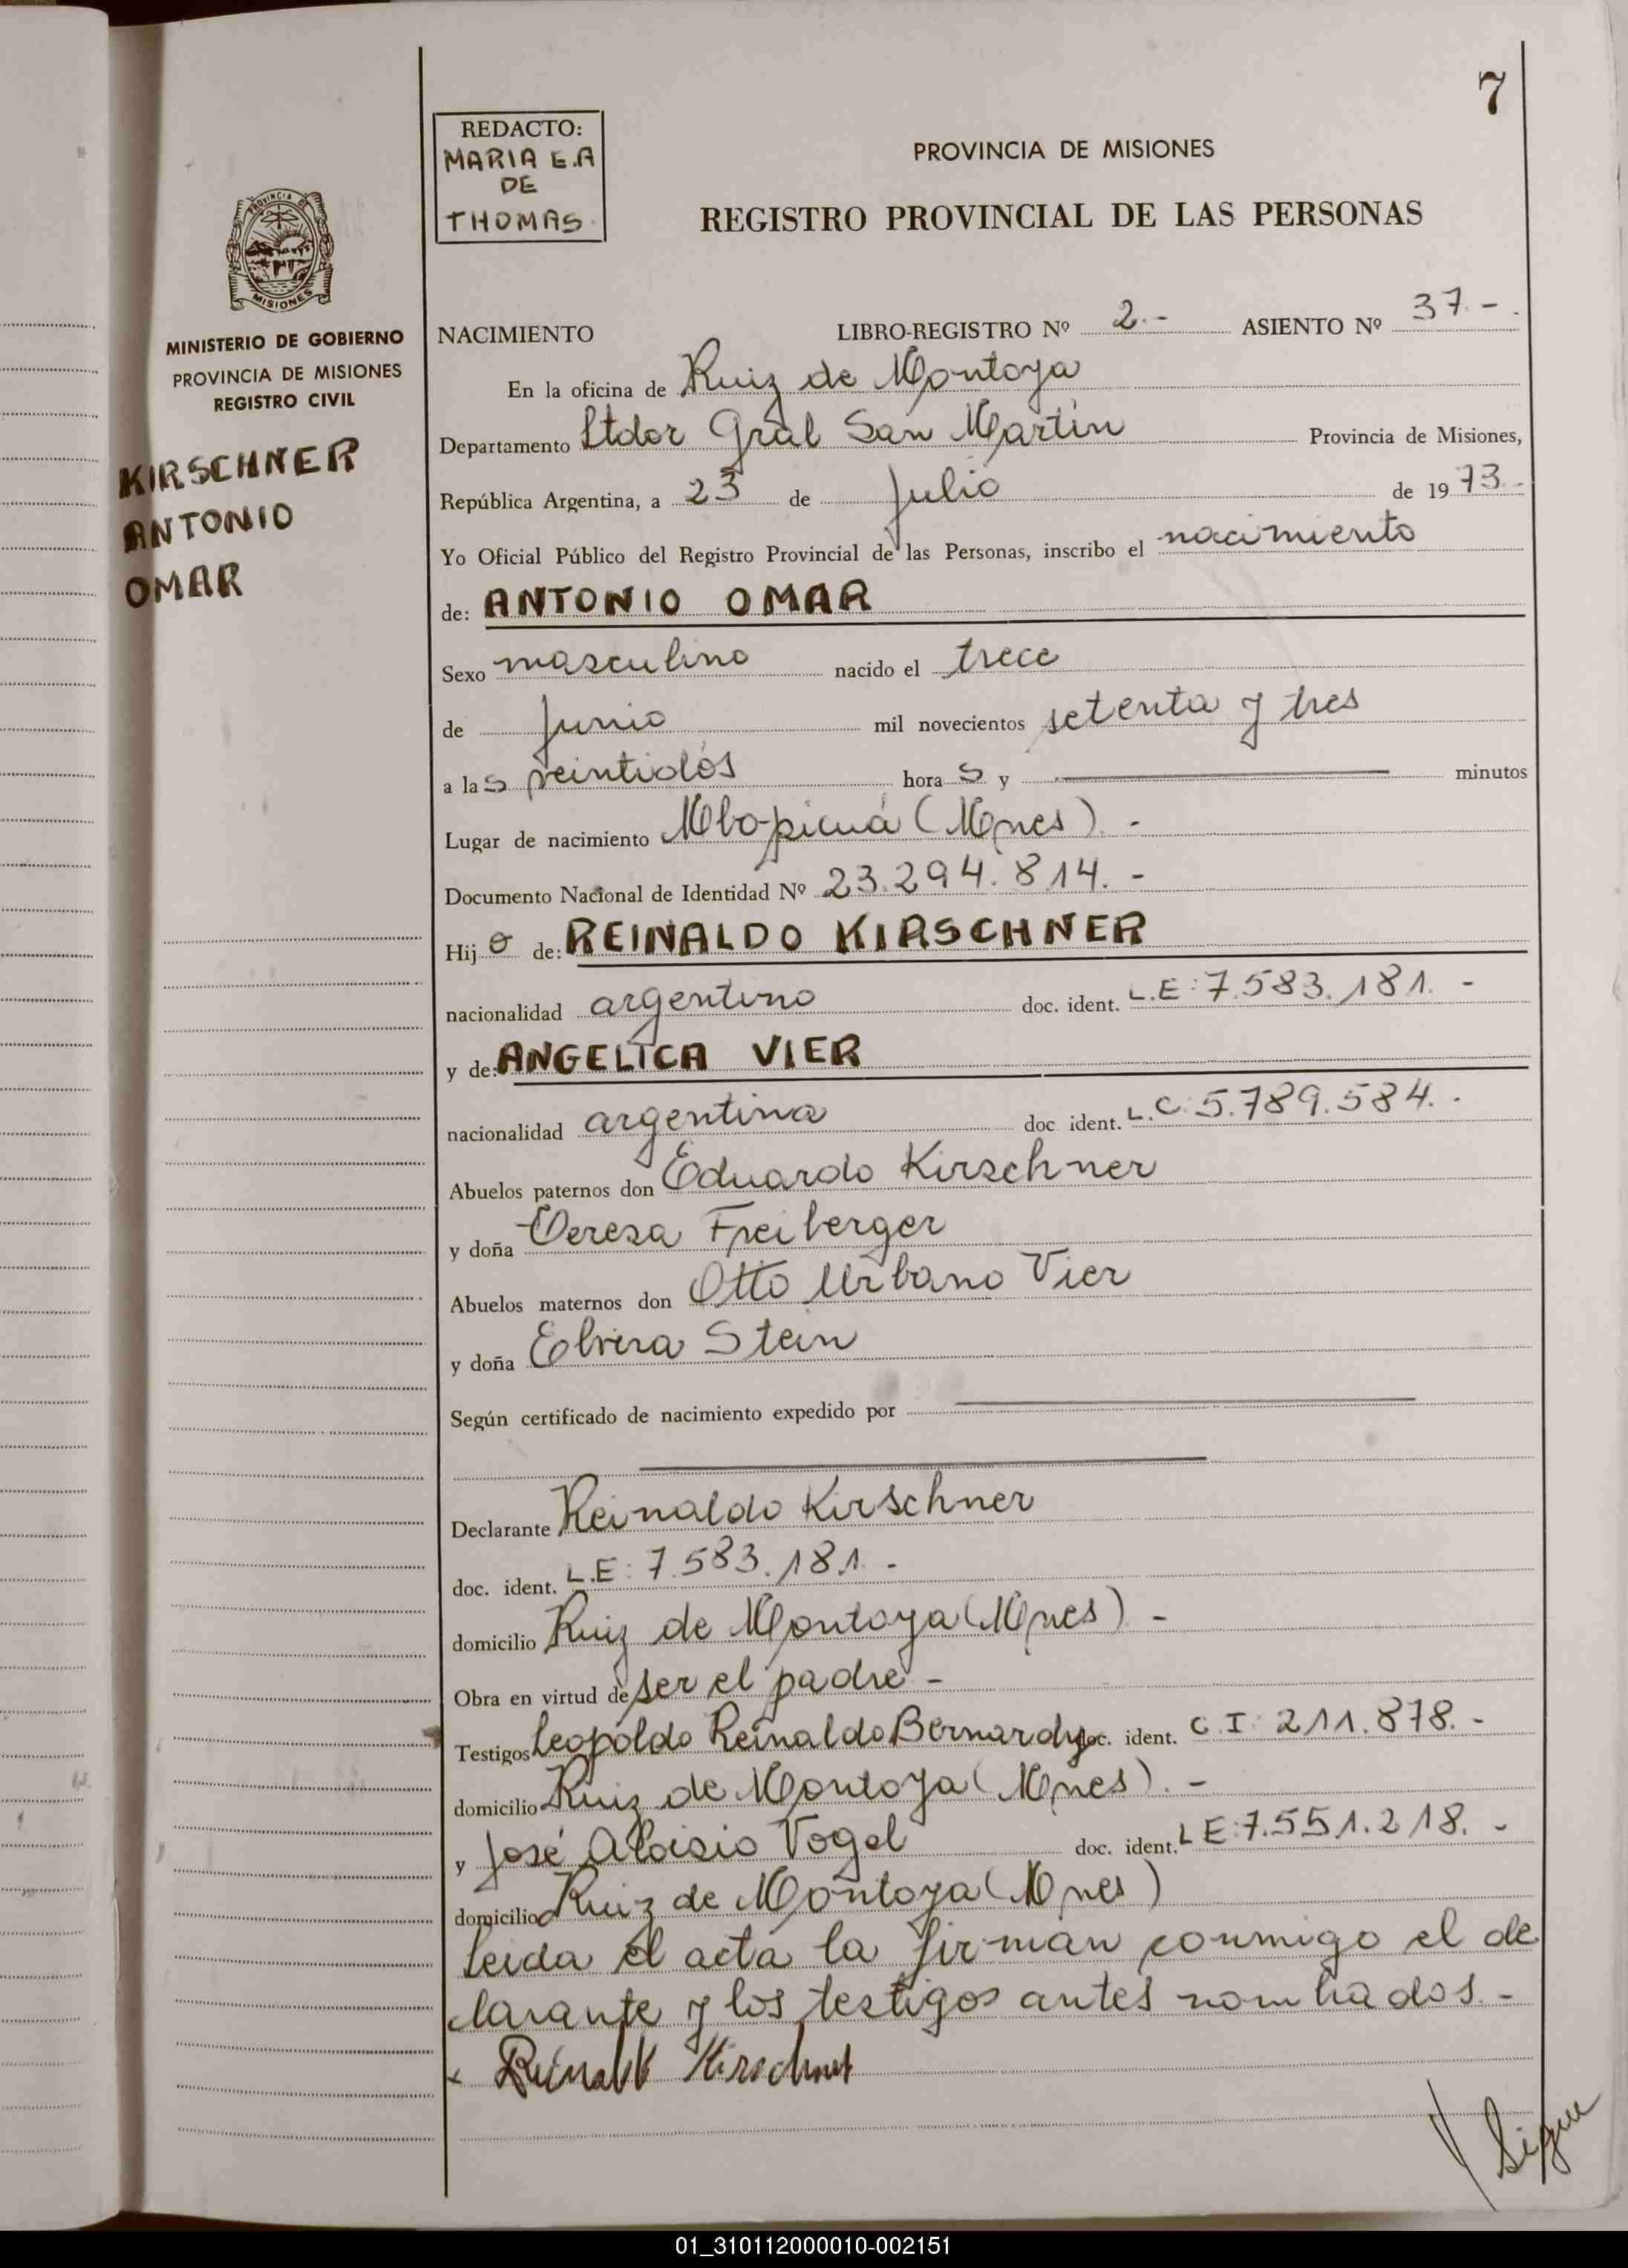 7
REDACTO:
MARIA E.A
DE
THOMAS.
PROVINCIA DE MISIONES
REGISTRO PROVINCIAL DE LAS PERSONAS
PROVINCIA DE
MISIONES
MINISTERIO DE GOBIERNO
PROVINCIA DE MISIONES
REGISTRO CIVIL
KIRSCHNER
ANTONIO
OMAR
NACIMIENTO LIBRO-REGISTRO Nº 2.- ASIENTO Nº 37.-
En la oficina de Ruiz de Montoya
Departamento Ltdor Gral San Martín Provincia de Misiones,
República Argentina, a 23 de Julio de 1973.-
Yo Oficial Público del Registro Provincial de las Personas, inscribo el nacimiento
de: ANTONIO OMAR
Sexo masculino nacido el trece
de Junio mil novecientos setenta y tres
a las veintidós horas y minutos
Lugar de nacimiento Mbopicuá (Mnes).-
Documento Nacional de Identidad Nº 23.294.814.-
Hijo de: REINALDO KIRSCHNER
nacionalidad argentino doc. ident. L.E: 7.583.181.-
y de: ANGELICA VIER
nacionalidad argentina doc ident. L.C: 5.789.584.-
Abuelos paternos don Eduardo Kirschner
y doña Teresa Freiberger
Abuelos maternos don Otto Urbano Vier
y doña Elvira Stein
Según certificado de nacimiento expedido por
Declarante Reinaldo Kirschner
doc. ident. L.E: 7.583.181.-
domicilio Ruiz de Montoya (Mnes).-
Obra en virtud de ser el padre.-
Testigos Leopoldo Reinaldo Bernardy doc. ident. C.I: 211.878.-
domicilio Ruiz de Montoya (Mnes).-
y José Aloisio Vogel doc. ident. L E: 7.551.218.-
domicilio Ruiz de Montoya (Mnes)
Leída el acta la firman conmigo el de
clarante y los testigos antes nombrados.-
x Reinaldo Kirschner
Sigue
01_310112000010-002151